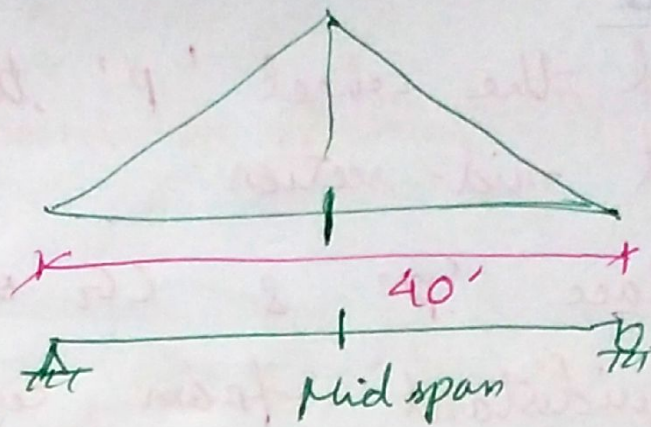 40'
Mid span